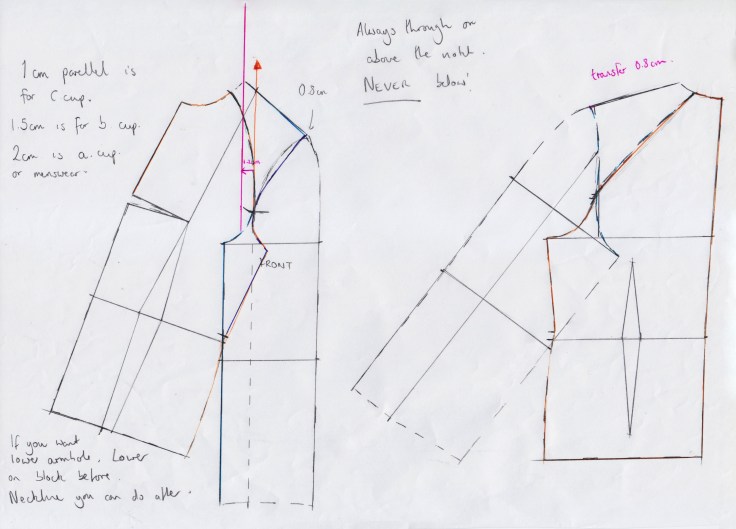 1cm parallel is
for C cup.
1.5cm is for b cup.
2cm is a. cup.
or menswear.
0.8cm
Always through or
above the notch.
NEVER below!
transfer 0.8cm.
FRONT
If you want
lower armhole. Lower
on block before.
Neckline you can do after.